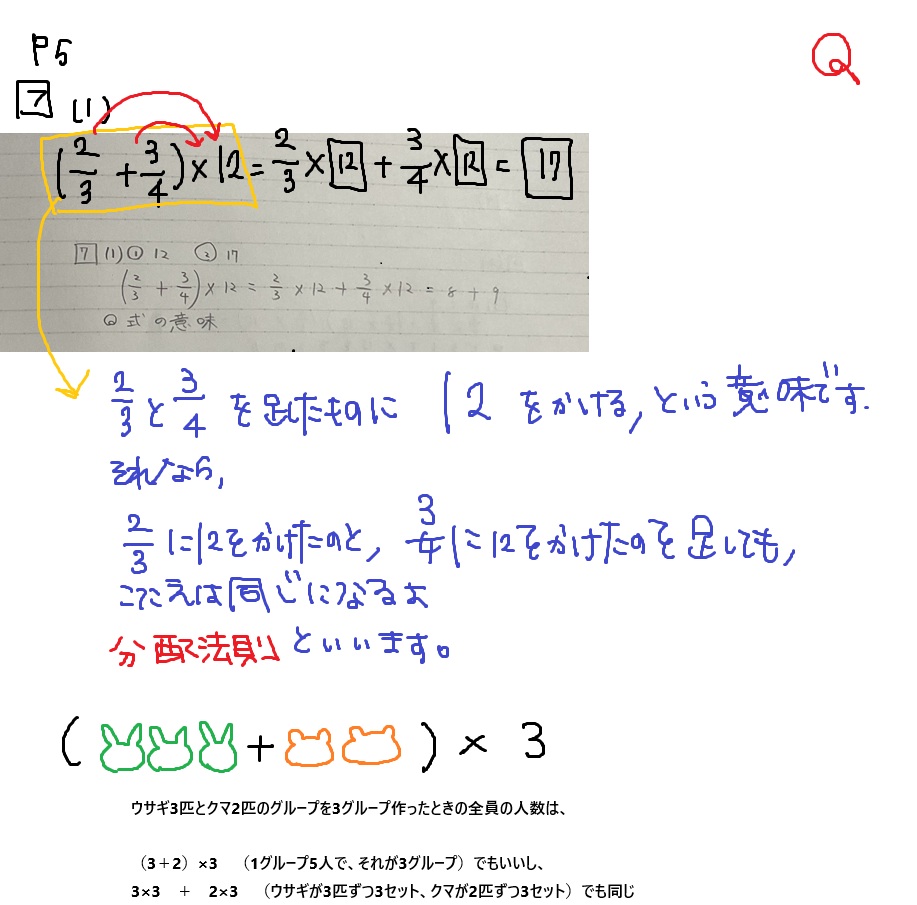 P5
Q
7 (1)
(2/3 + 3/4) × 12 = 2/3 × 12 + 3/4 × 12 = 17
7 (1) ① 12 ② 17
(2/3 + 3/4) × 12 = 2/3 × 12 + 3/4 × 12 = 8 + 9
◎ 式の意味
2/3 と 3/4 を足したものに 12 をかける, という意味です.
それなら,
2/3 に12をかけたのと, 3/4 に12をかけたのを足しても,
こたえは同じになるよ
分配法則といいます。
( + ) × 3
ウサギ3匹とクマ2匹のグループを3グループ作ったときの全員の人数は、
（3＋2）×3 （1グループ5人で、それが3グループ）でもいいし、
3×3 ＋ 2×3 （ウサギが3匹ずつ3セット、クマが2匹ずつ3セット）でも同じ